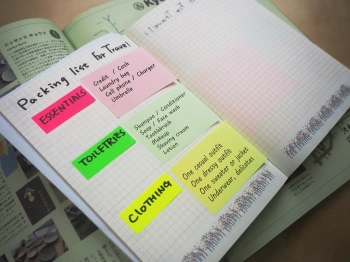 Packing list for Travel
ESSENTIALS
Credit / Cash
Laundry bag
Cell phone / Charger
Umbrella
TOILETRIES
Shampoo / Conditioner
Soap / Face wash
Toothbrush
Makeup
Shaving cream
Lotion
CLOTHING
One casual outfit
One dressy outfit
One sweater or jacket
Underwear, delicates